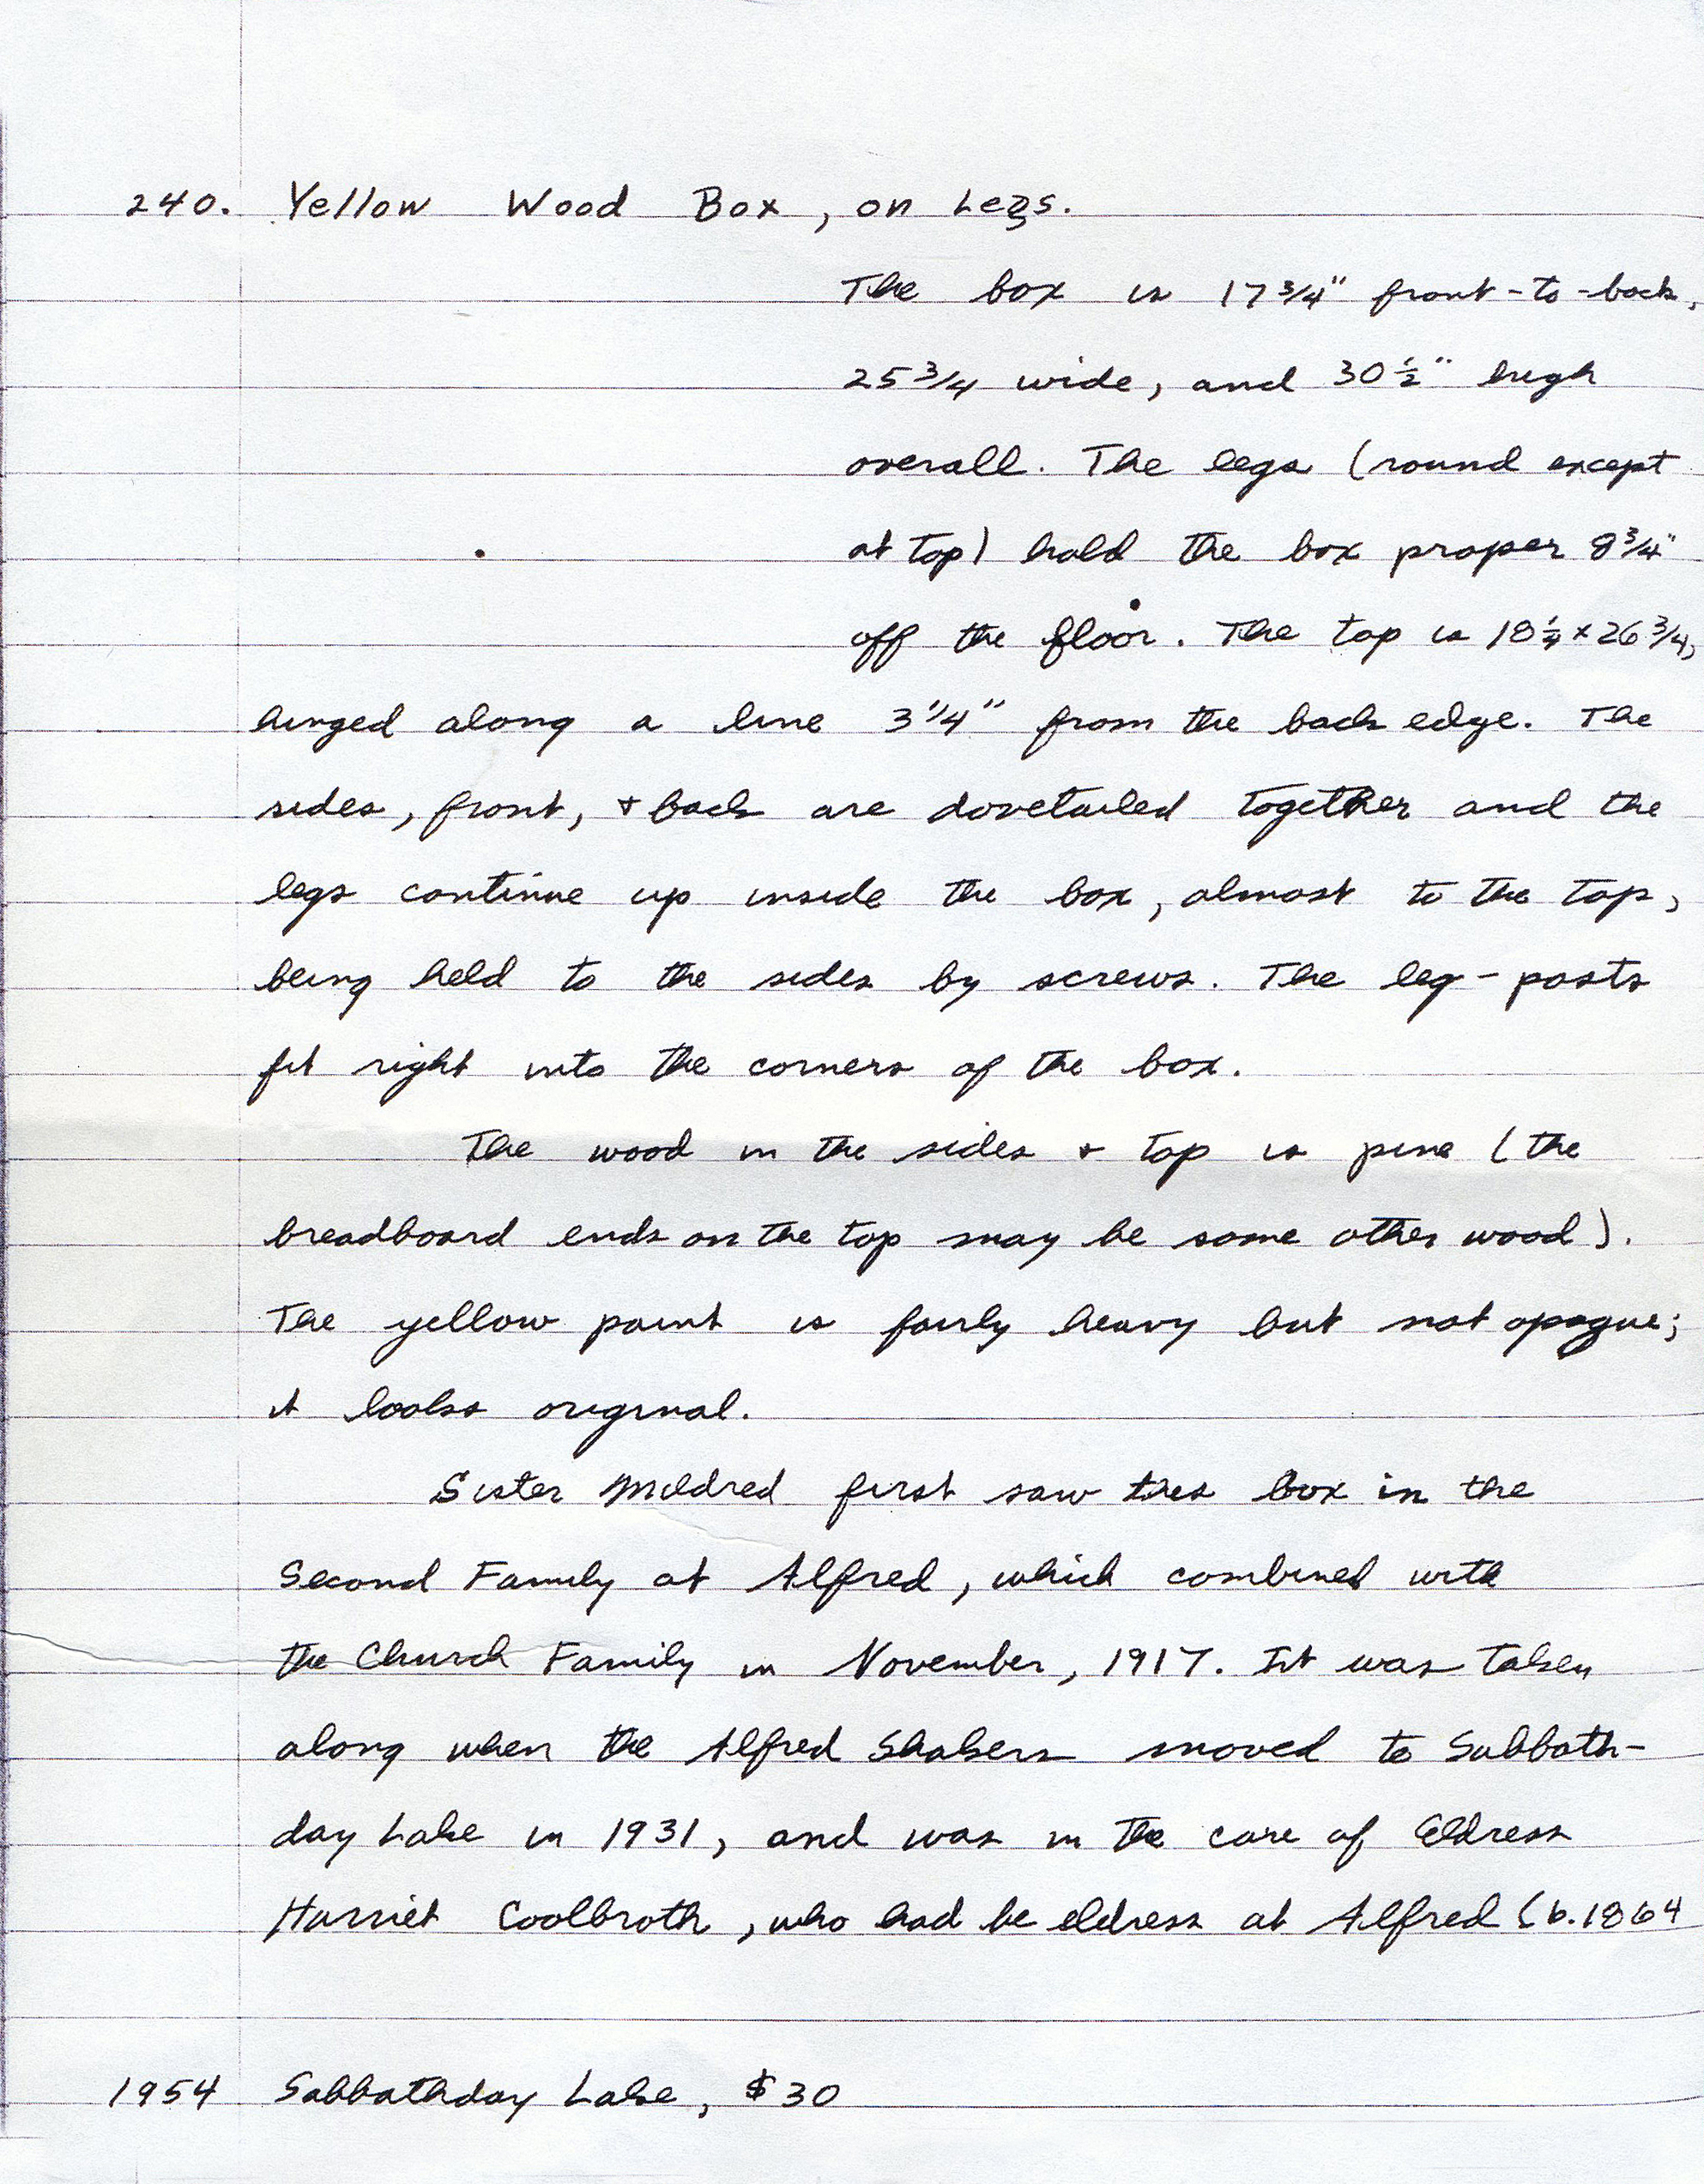 240. Yellow Wood Box, on Legs.
The box is 17 3/4" front-to-back,
25 3/4 wide, and 30 1/2" high
overall. The legs (round except
at top) hold the box proper 8 3/4"
off the floor. The top is 18 1/4 x 26 3/4,
hinged along a line 3 1/4" from the back edge. The
sides, front, + back are dovetailed together and the
legs continue up inside the box, almost to the top,
being held to the sides by screws. The leg-posts
fit right into the corners of the box.
The wood in the sides + top is pine (the
breadboard ends on the top may be some other wood).
The yellow paint is fairly heavy but not opaque;
it looks original.
Sister Mildred first saw this box in the
Second Family at Alfred, which combined with
the Church Family in November, 1917. It was taken
along when the Alfred Shakers moved to Sabbath-
day Lake in 1931, and was in the care of Eldress
Harriet Coolbroth, who had be eldress at Alfred (b. 1864
1954 Sabbathday Lake, $30